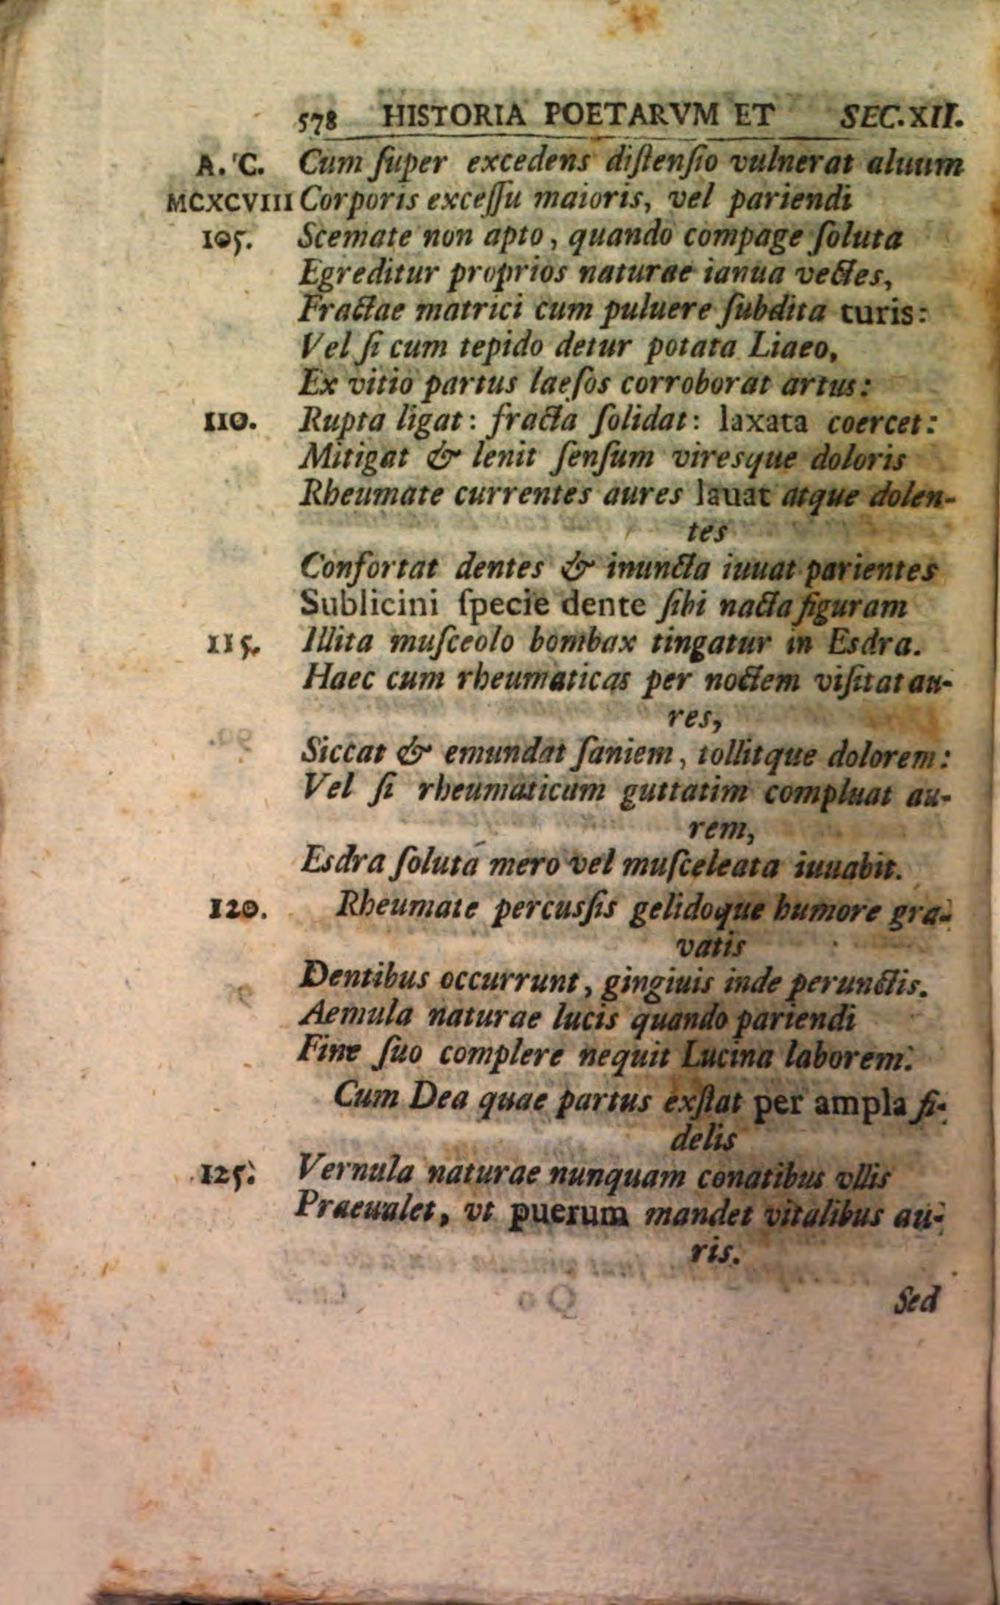 578 HISTORIA POETARVM ET SEC. XII.
A. C. Cum ſuper excedens diſtenſio vulnerat aluum
MCXCVIII Corporis exceſſu maioris, vel pariendi
105. Scemate non apto, quando compage ſoluta
Egreditur proprios naturae ianua vectes,
Fractae matrici cum puluere ſubdita turis:
Vel ſi cum tepido detur potata Liaeo,
Ex vitio partus laeſos corroborat artus:
110. Rupta ligat: fracta ſolidat: laxata coercet:
Mitigat & lenit ſenſum viresque doloris
Rheumate currentes aures lauat atque dolen-
tes
Confortat dentes & inuncta iuuat parientes
Sublicini ſpecie dente ſibi nacta figuram
115. Illita muſceolo bombax tingatur in Esdra.
Haec cum rheumaticas per noctem viſitat au-
res,
Siccat & emundat ſaniem, tollitque dolorem:
Vel ſi rheumaticam guttatim compluat au-
rem,
Esdra ſoluta mero vel muſceleata iuuabit.
120. Rheumate percuſſis gelidoque humore gra-
vatis
Dentibus occurrunt, gingiuis inde perunctis.
Aemula naturae lucis quando pariendi
Fine ſuo complere nequit Lucina laborem.
Cum Dea quae partus exſtat per ampla fi-
delis
125. Vernula naturae nunquam conatibus vllis
Praeualet, vt puerum mandet vitalibus au-
ris.
Sed